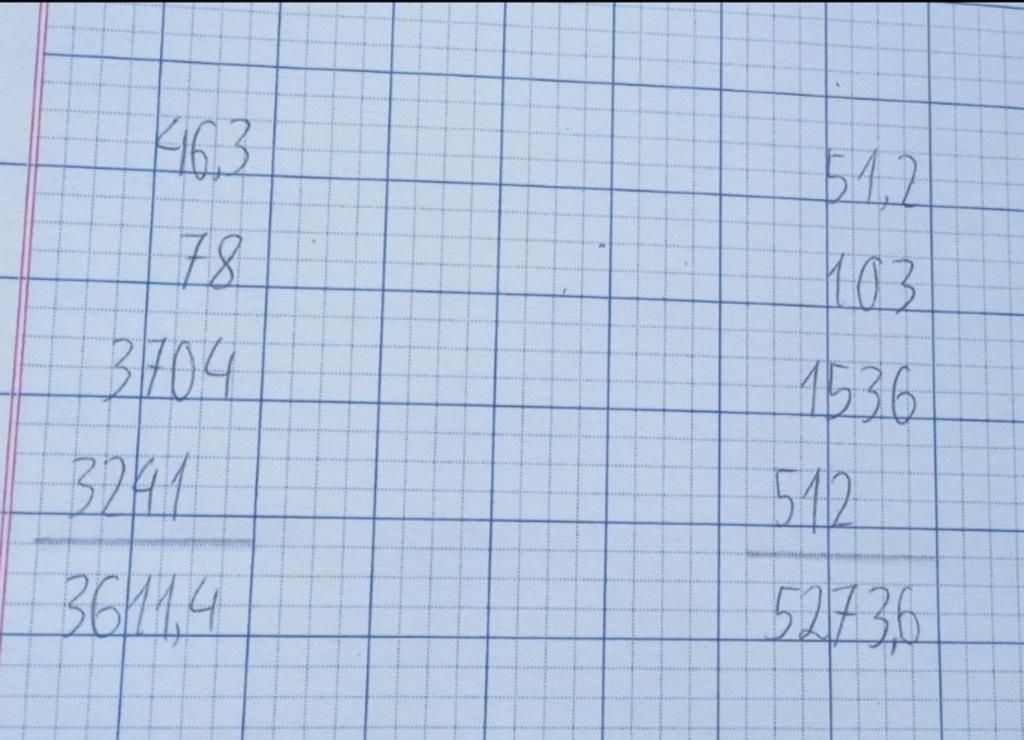 46,3
78
3704
3241
3611,4
51,2
103
1536
512
5273,6